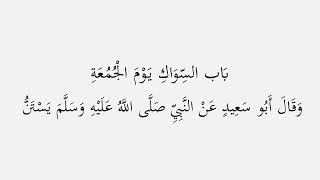 بَاب السِّوَاكِ يَوْمَ الْجُمُعَةِ
وَقَالَ أَبُو سَعِيدٍ عَنْ النَّبِيِّ صَلَّى اللَّهُ عَلَيْهِ وَسَلَّمَ يَسْتَنُّ